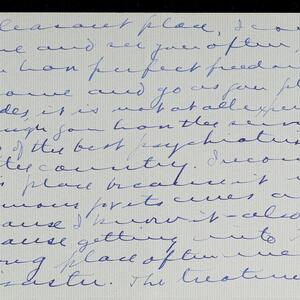 leasant place, I co
me and see you often,
u have perfect freedom
ome and go as you pl
des, it is not at all expen
ugh you have the servi
of the best psychiatris
the country. I recom
s place because it i
mous for its cures a
ause I know it - also
cause getting into
ong place often me
isaster. The treatme